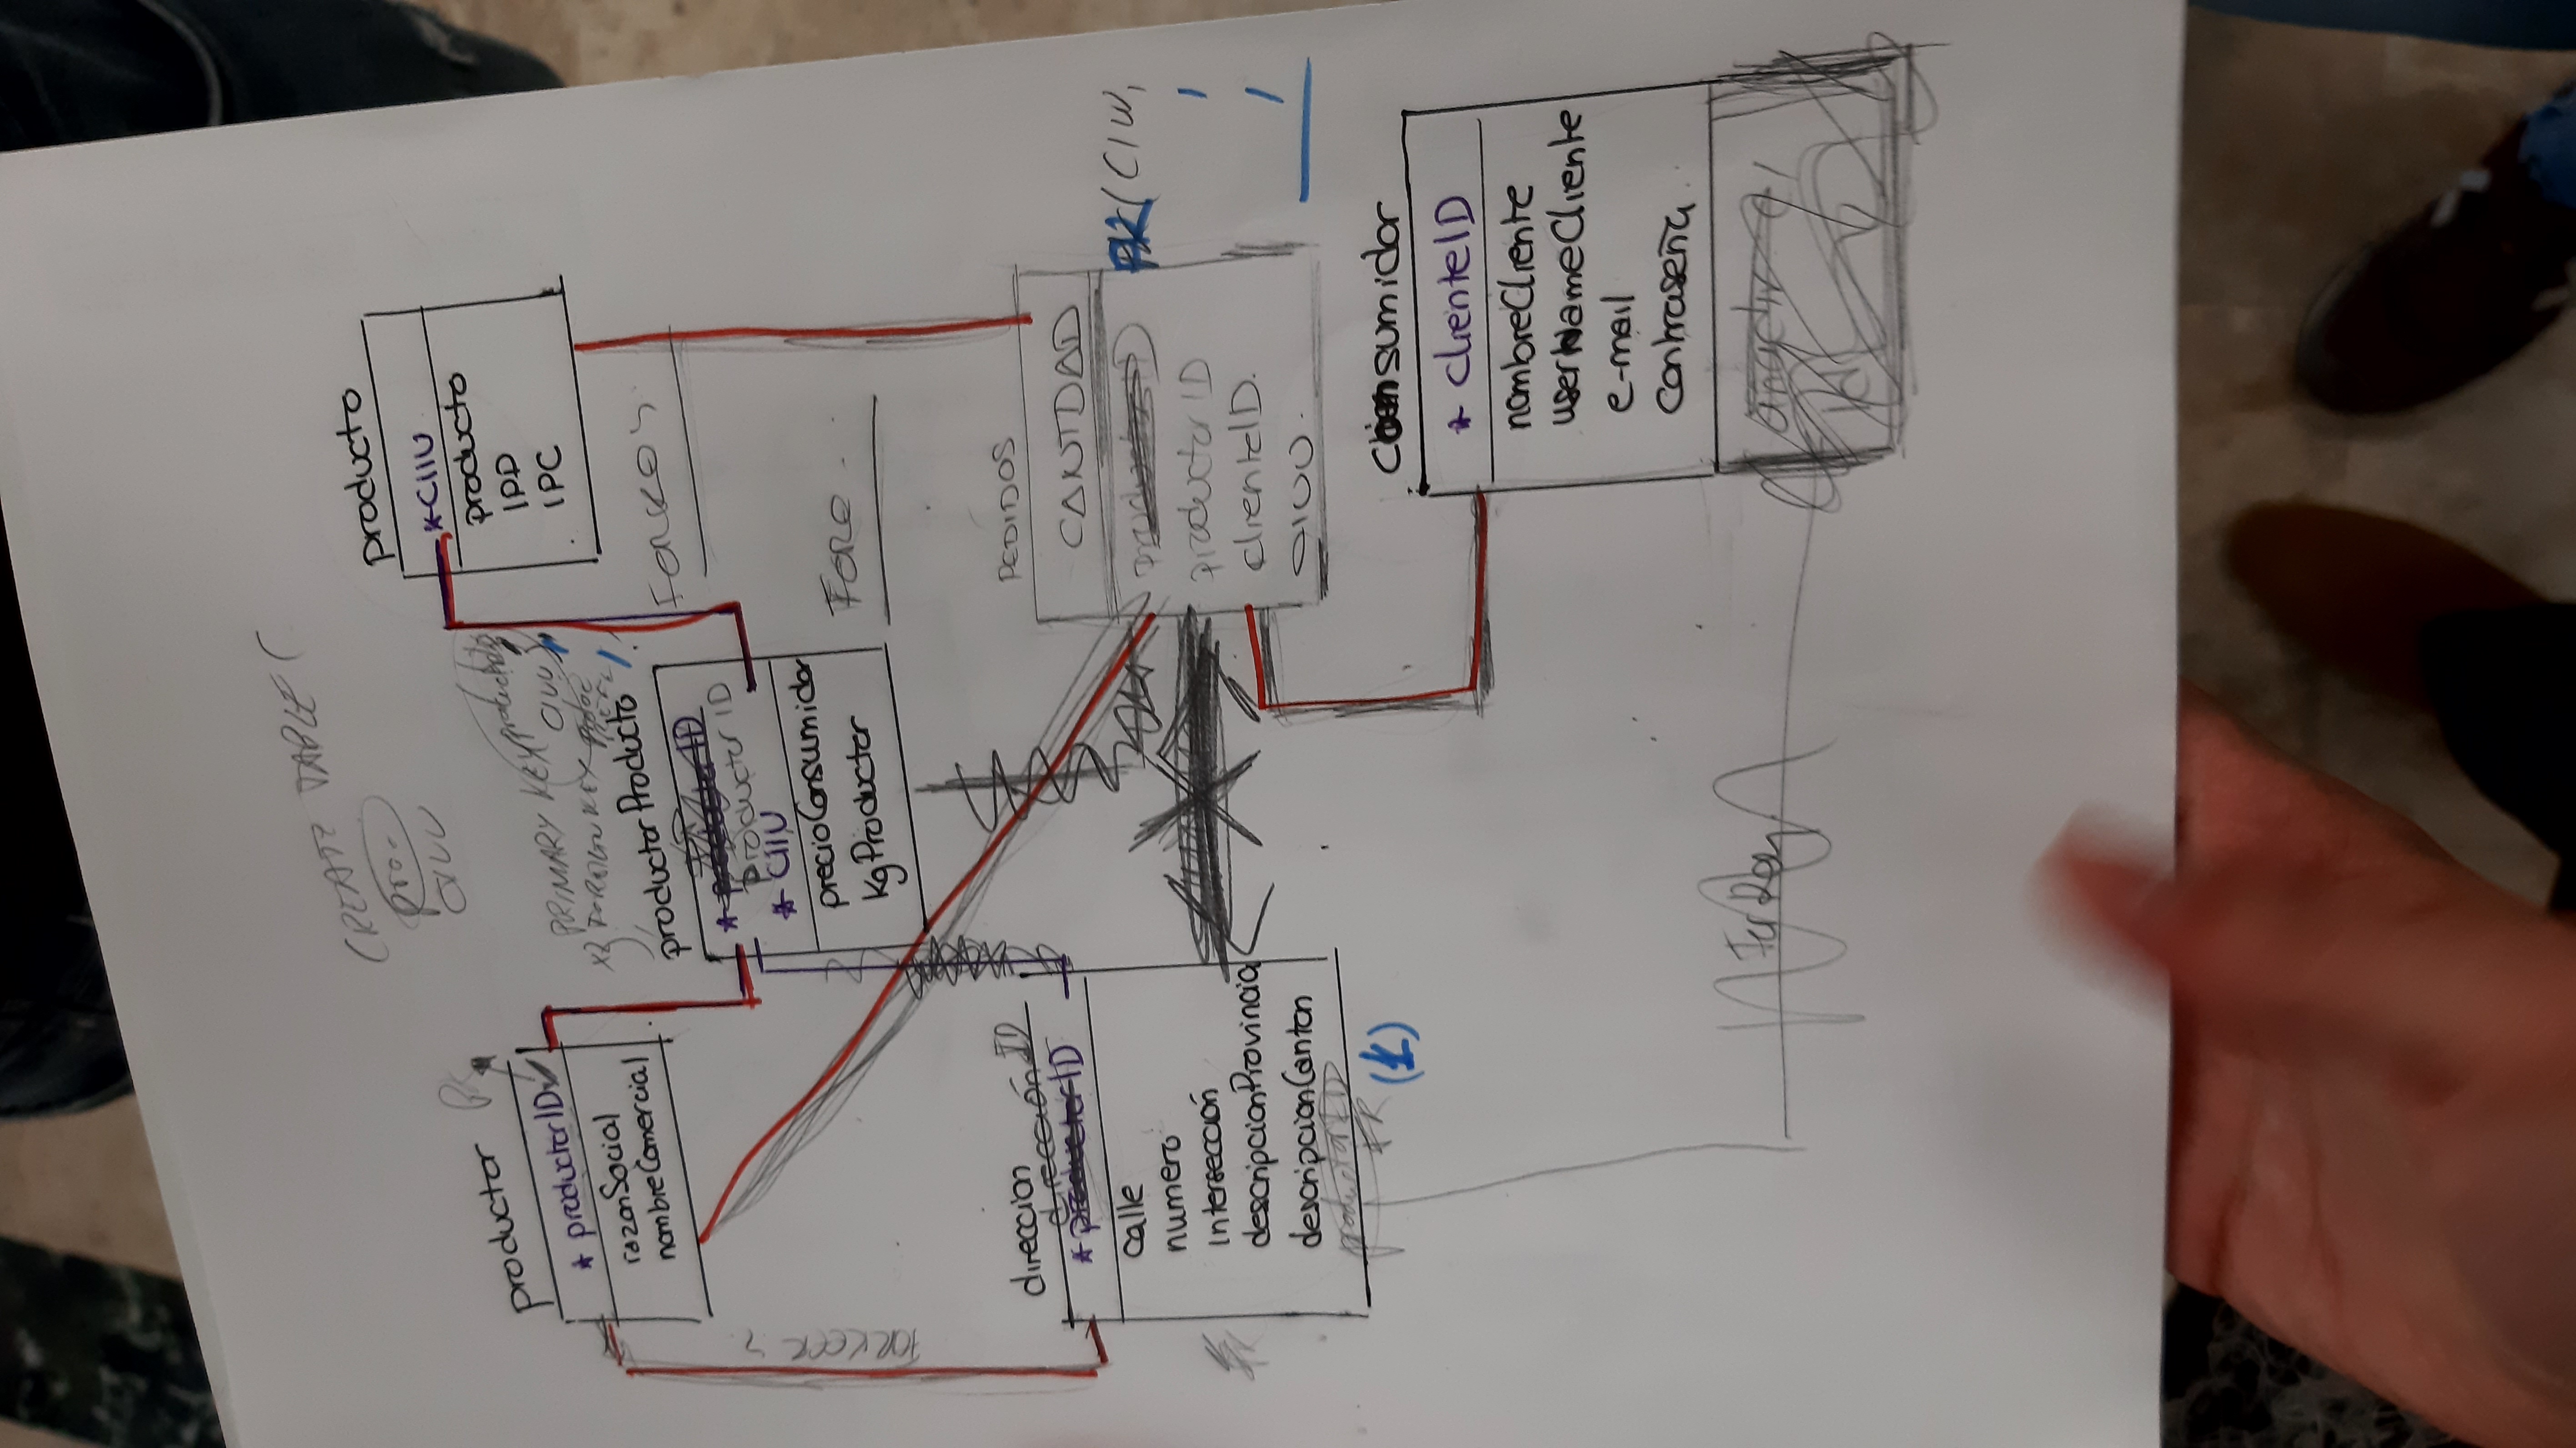 CREATE TABLE (
pro..
CIIU
producto
*CIIU
producto
IPD
IPC
productor
* productorID
razonSocial
nombreComercial
PRIMARY KEY
CIIU
FOREIGN KEY
productorProducto
* productorID
productor ID
* CIIU
precioConsumidor
kgProductor
Fore
direccion
dirección ID
* productorID
calle
numero
Intersección
descripcionProvincia
descripcionCanton
productorID
FR
(1)
PEDIDOS
CANTIDAD
productor ID
clienteID.
CIIU.
PK(CIIU,
Consumidor
* clienteID
nombreCliente
userNameCliente
e-mail
contraseña
añadir